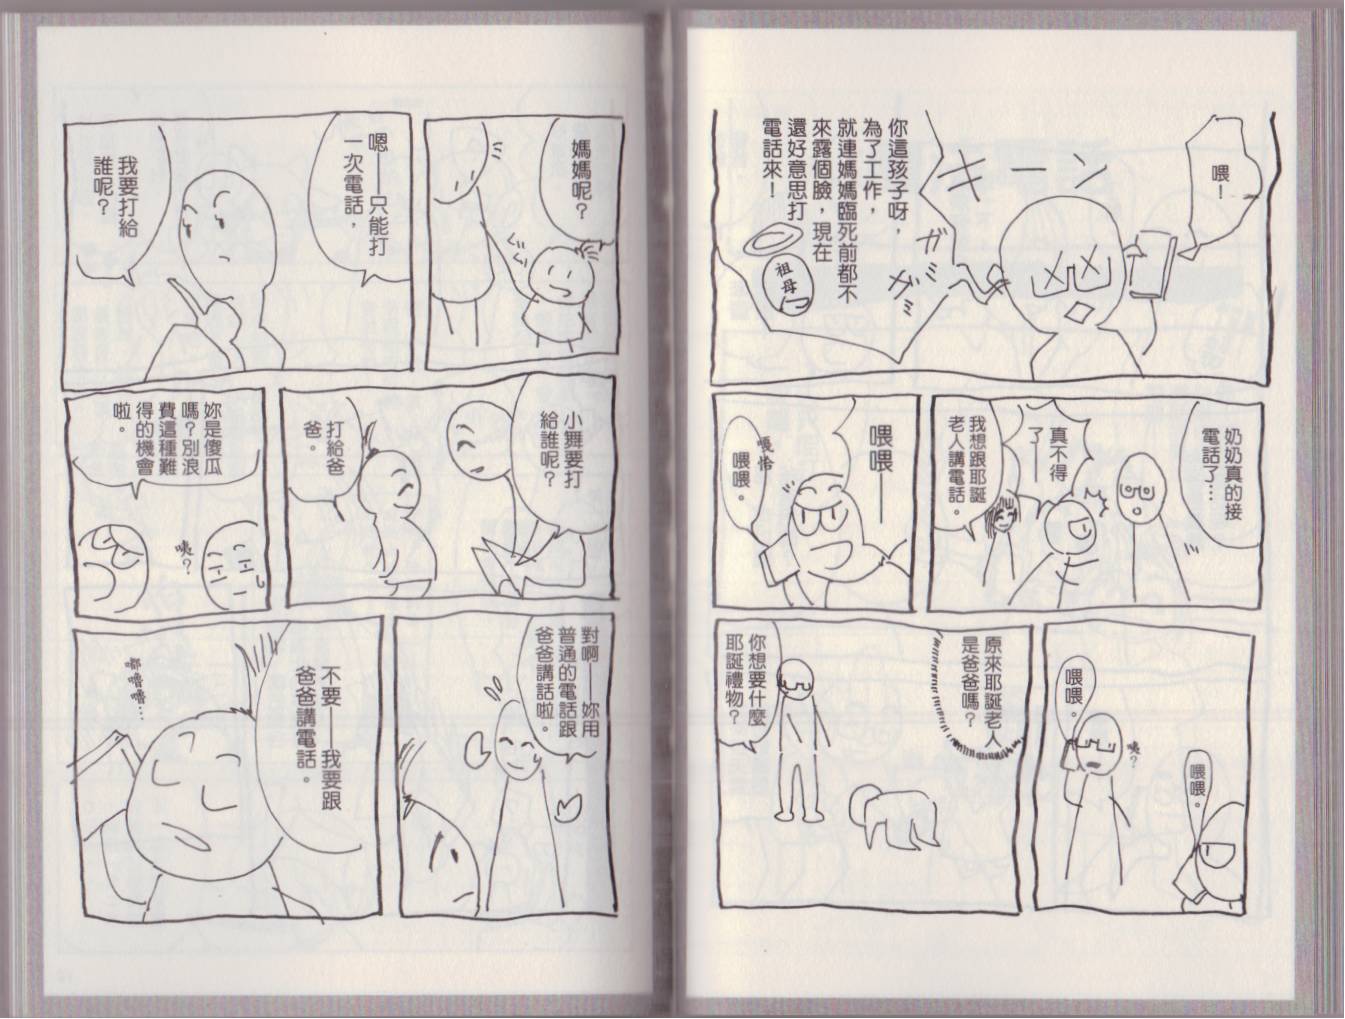 喂！
キーン
ガガガミ
你這孩子呀，
為了工作，
就連媽媽臨死前都不
來露個臉，現在
還好意思打
電話來！
祖母
奶奶真的接
電話了…
真不得
了——
我想跟耶誕
老人講電話。
喂喂——
嘎恰
喂喂。
喂喂。
咦？
喂喂。
原來耶誕老人
是爸爸嗎？
你想要什麼
耶誕禮物？
媽媽呢？
ぐい
嗯——只能打
一次電話，
我要打給
誰呢？
小舞要打
給誰呢？
打給爸
爸。
妳是傻瓜
嗎？別浪
費這種難
得的機會
啦。
咦？
對啊——妳用
普通的電話跟
爸爸講話啦。
不要——我要跟
爸爸講電話。